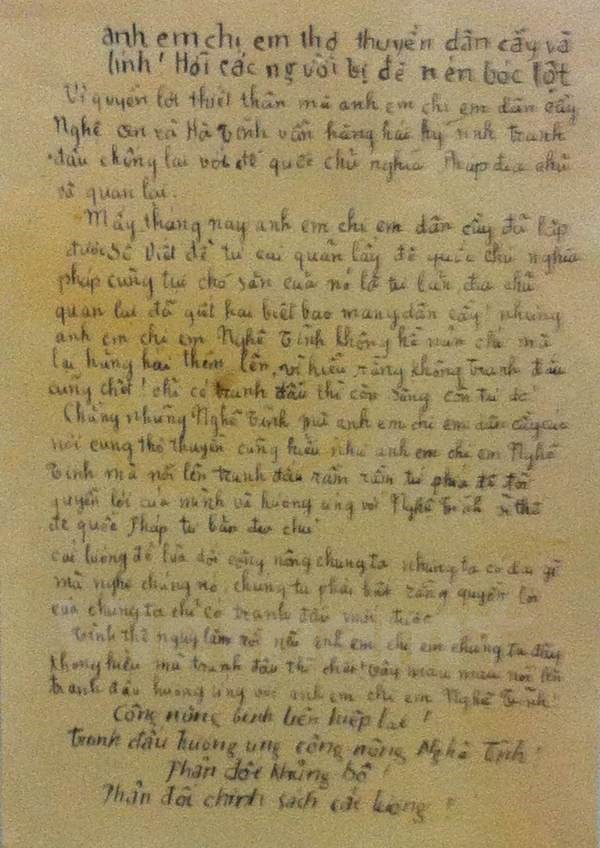 anh em chị em thợ thuyền dân cầy và
lính! Hỡi các người bị đè nén bóc lột
Vì quyền lợi thiết thân mà anh em chị em dân cầy
Nghệ An và Hà Tĩnh vẫn hăng hái hy sinh tranh
đấu chống lại với đế quốc chủ nghĩa Pháp địa chủ
và quan lại.
Mấy tháng nay anh em chị em dân cầy đã lập
được Sô Viết để tự cai quản lấy đế quốc chủ nghĩa
pháp cũng tụi chó săn của nó là tư bản, địa chủ
quan lại đã giết hại biết bao mạng dân cầy! nhưng
anh em chị em Nghệ Tĩnh không hề nản chí mà
lại hăng hái thêm lên, vì hiểu rằng không tranh đấu
cũng chết! chỉ có tranh đấu thì còn sống còn tự do!
Chẳng những Nghệ Tĩnh mà anh em chị em dân cầy các
nơi cùng thợ thuyền cũng hiểu như anh em chị em Nghệ
Tĩnh mà nổi lên tranh đấu rầm rầm tứ phía để đòi
quyền lợi của mình và hưởng ứng với Nghệ Tĩnh vì thế
đế quốc Pháp tư bản địa chủ
cải lương để lừa dối công nông chúng ta nhưng ta có dại gì
mà nghe chúng nó, chúng ta phải biết rằng quyền lợi
của chúng ta chỉ có tranh đấu mới được
Tình thế nguy lắm rồi nếu anh em chị em chúng ta đây
không hiểu mà tranh đấu thì chết! vậy mau mau nổi lên
tranh đấu hưởng ứng với anh em chị em Nghệ Tĩnh!
Công nông binh liên hiệp lại!
Tranh đấu hưởng ứng công nông Nghệ Tĩnh!
Phản đối khủng bố!
Phản đối chính sách cải lương!